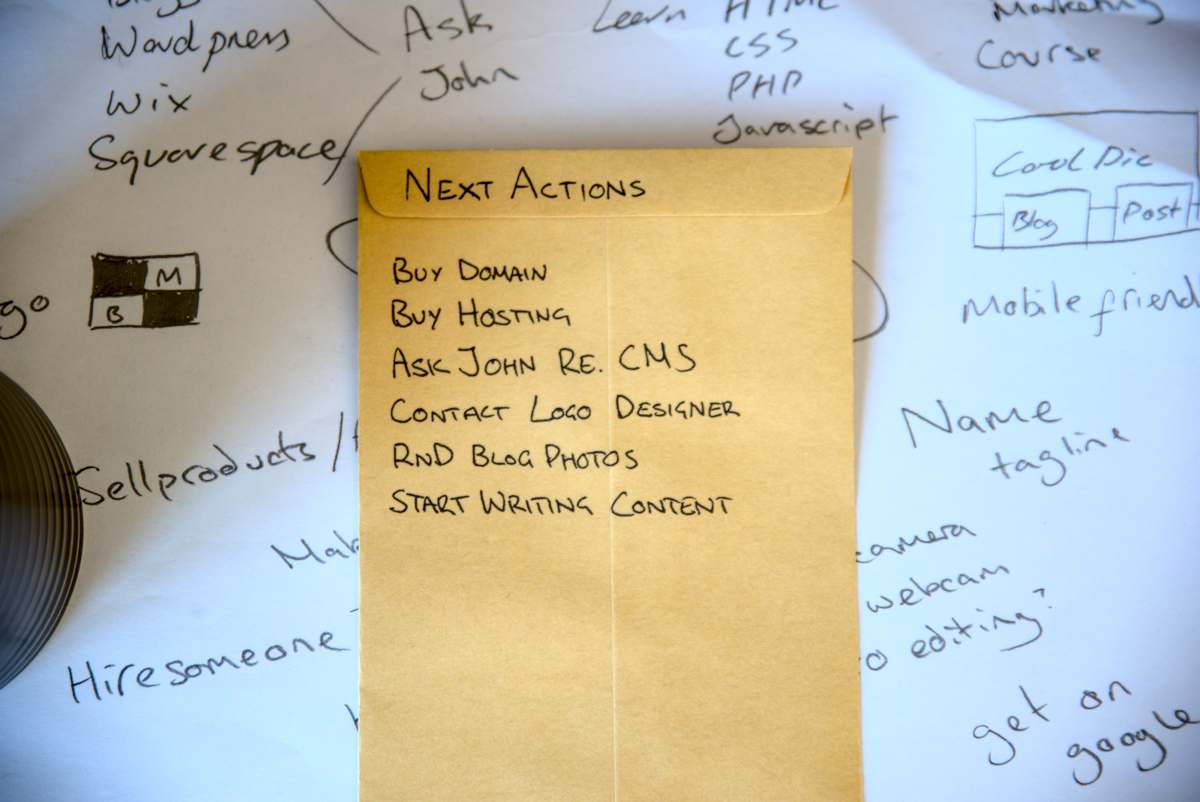 Wordpress
Wix
Squarespace
Ask
John
Learn
HTML
CSS
PHP
Javascript
Marketing
Course
Cool Pic
Blog
Post
M
B
Mobile friend
Name
tagline
NEXT ACTIONS
BUY DOMAIN
BUY HOSTING
ASK JOHN RE. CMS
CONTACT LOGO DESIGNER
RND BLOG PHOTOS
START WRITING CONTENT
Sell products /
Hire someone
camera
webcam
editing?
get on
google